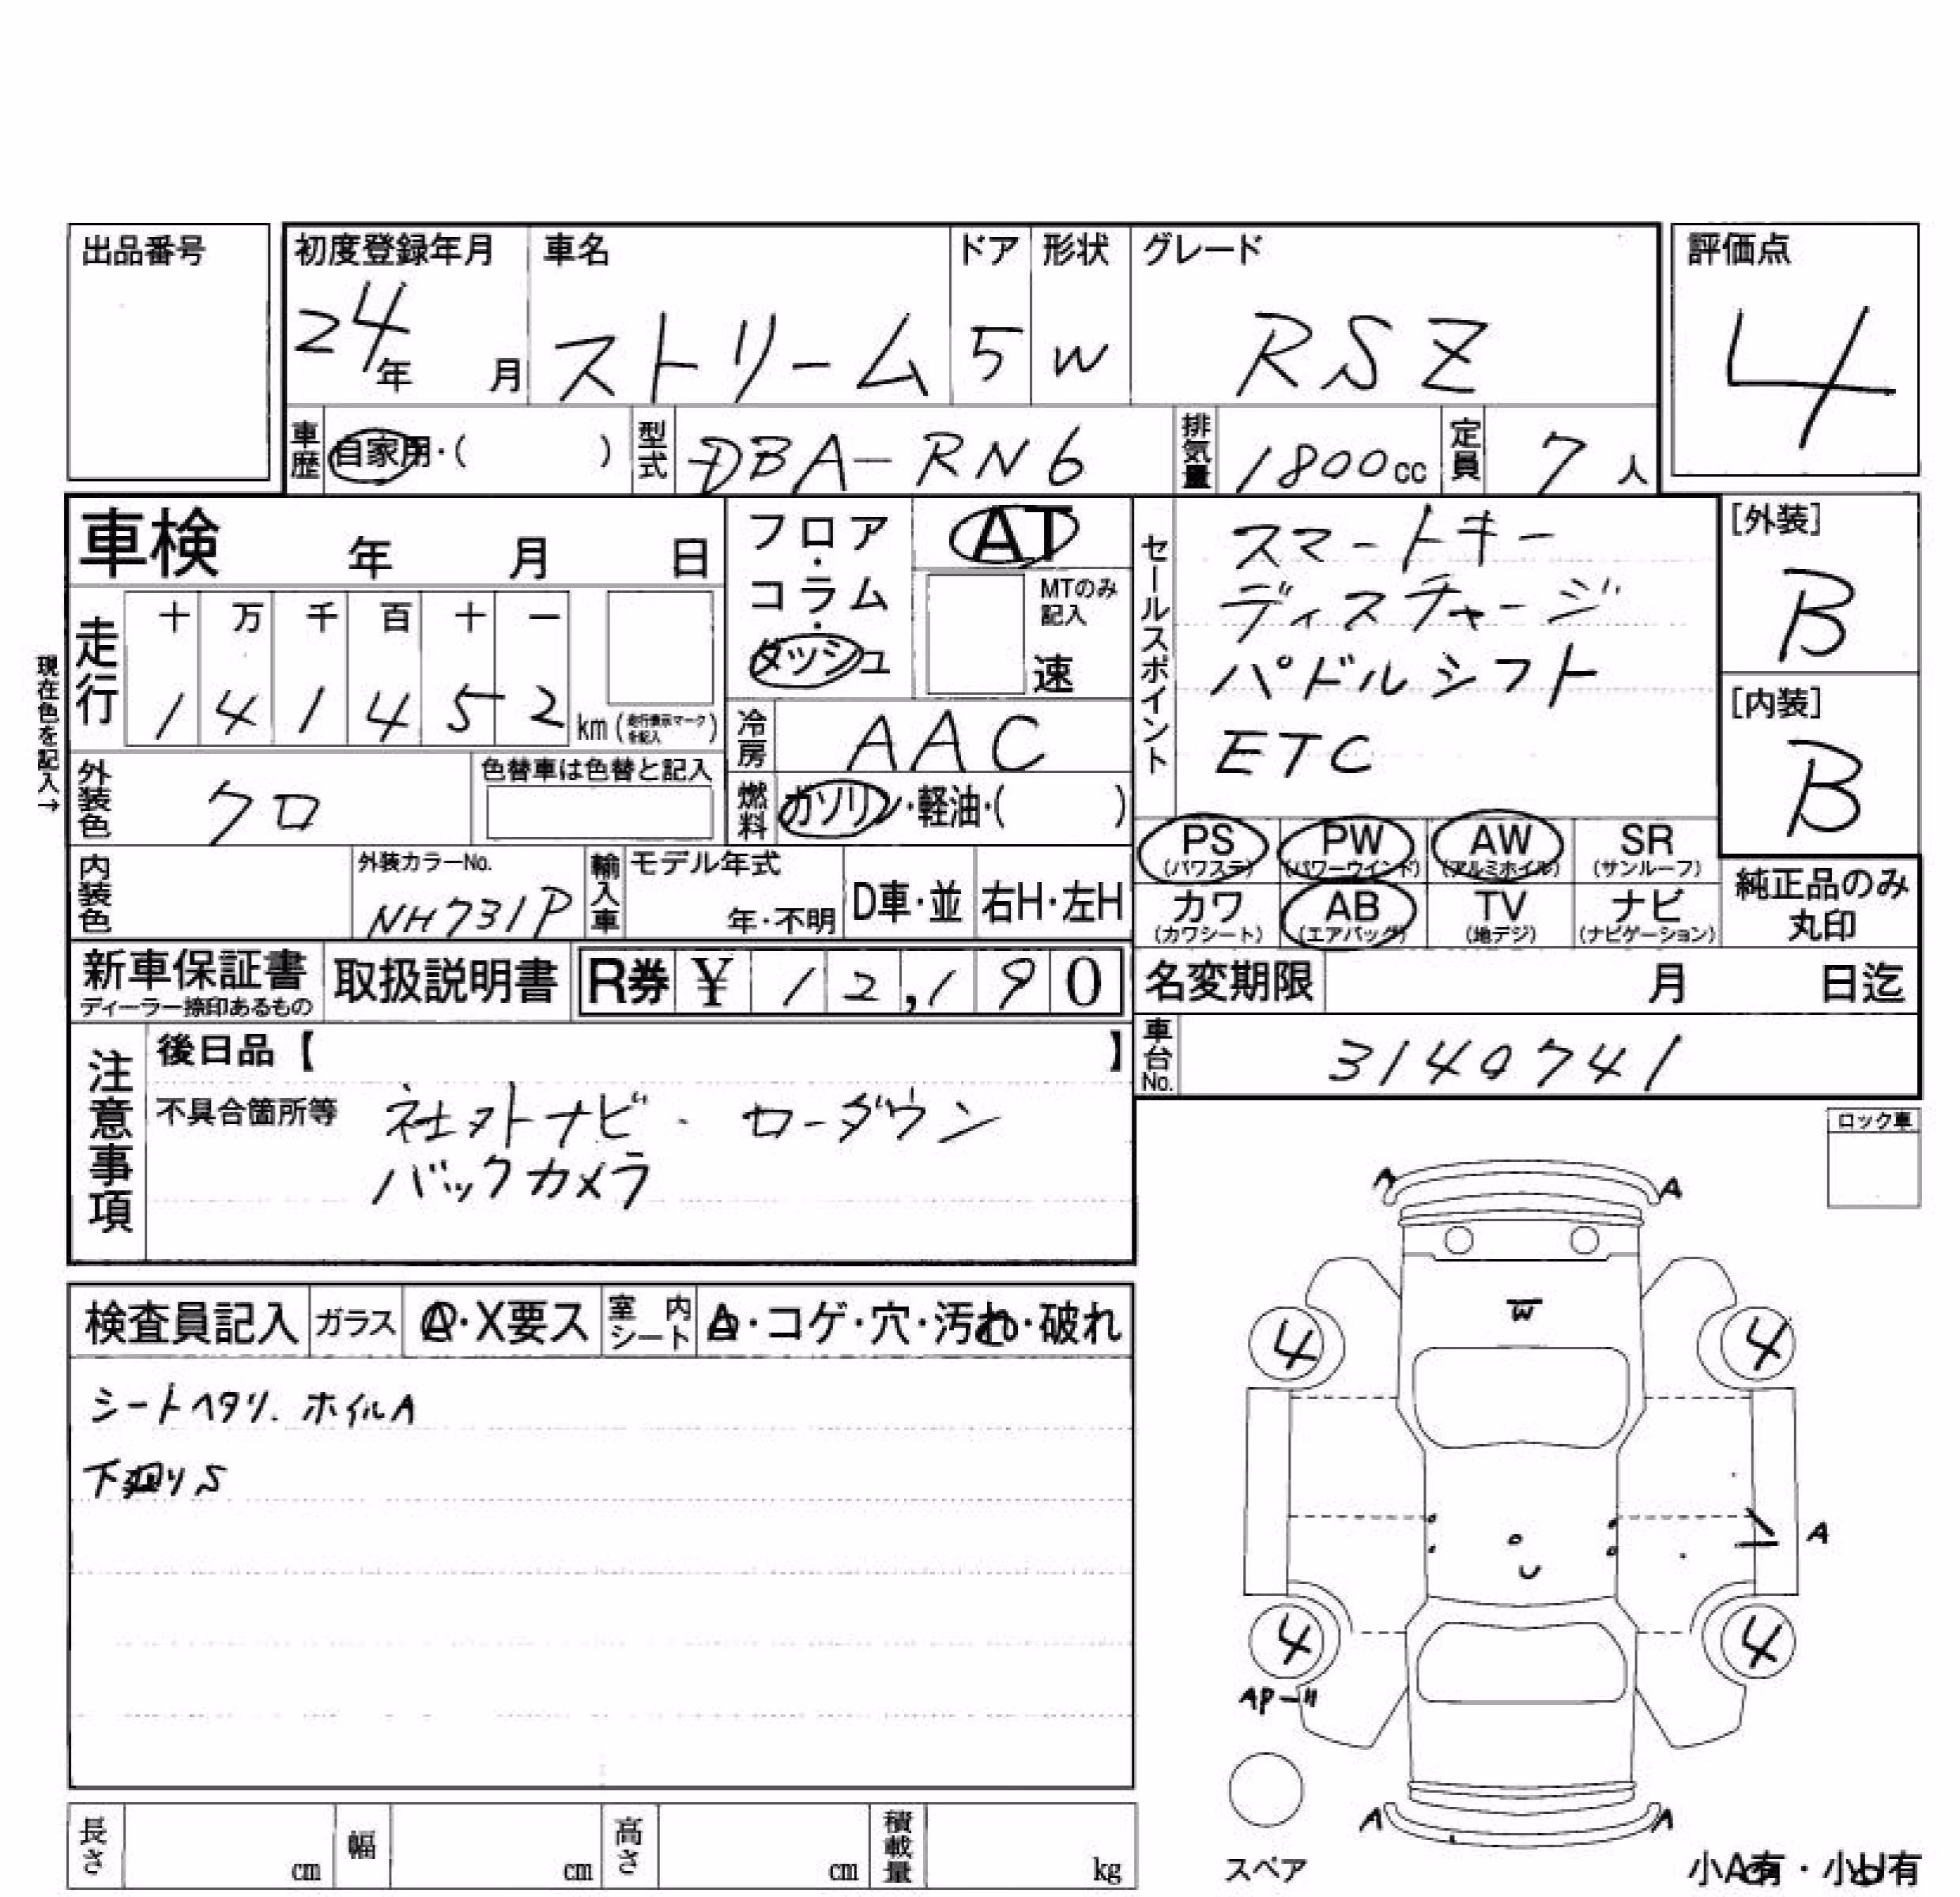 出品番号
初度登録年月 車名 ドア 形状 グレード 評価点
24年 月 ストリーム 5 W RSZ 4
車歴 自家用・( ) 型式 DBA-RN6 排気量 1800cc 定員 7人
車検 年 月 日
フロア・コラム・ダッシュ AT
MTのみ記入
速
セールスポイント
スマートキー
ディスチャージ
パドルシフト
ETC
[外装]
B
[内装]
B
現在色を記入→
走行 十 万 千 百 十 一
1 4 1 4 5 2 km (走行表示マークを記入)
冷房 AAC
外装色 クロ 色替車は色替と記入
燃料 ガソリン・軽油・( )
PS (パワステ) PW (パワーウインド) AW (アルミホイル) SR (サンルーフ)
カワ (カワシート) AB (エアバッグ) TV (地デジ) ナビ (ナビゲーション)
純正品のみ
丸印
内装色 外装カラーNo. NH731P 輸入車 モデル年式 年・不明 D車・並 右H・左H
新車保証書 取扱説明書 R券 ¥ 12,190
ディーラー捺印あるもの
名変期限 月 日迄
車台No. 3140741
注意事項
後日品【 】
不具合箇所等 社外ナビ・ローダウン
バックカメラ
ロック車
検査員記入 ガラス A・X要ス 室内シート A・コゲ・穴・汚れ・破れ
シートヘタリ. ホイルA
下廻りS
A
W
4 4
A
4 4
AP-
A A
スペア
小A有・小U有
長さ cm 幅 cm 高さ cm 積載量 kg